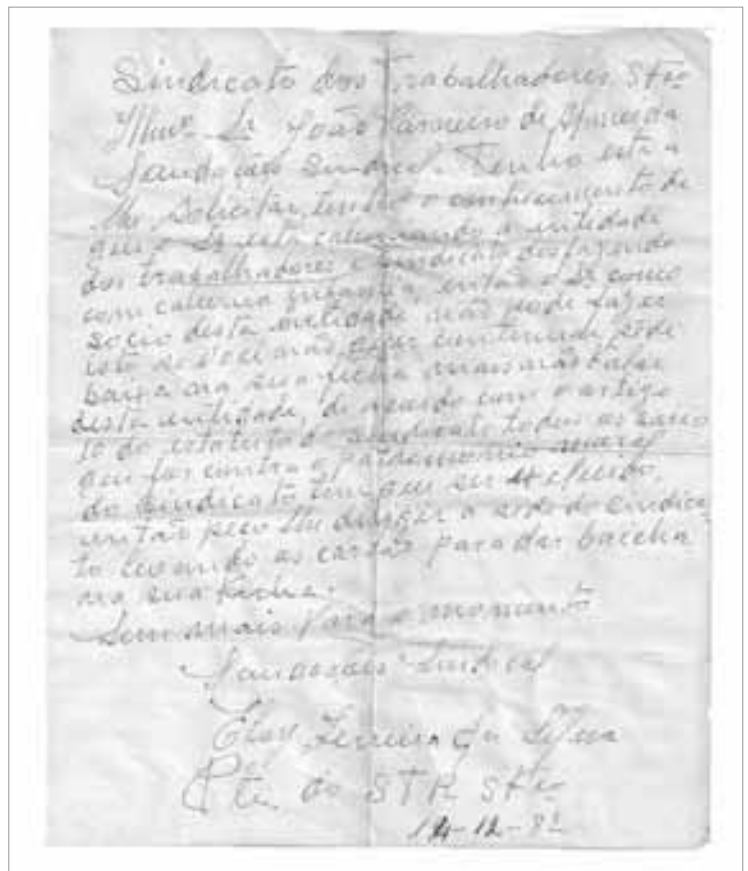 Sindicato dos Trabalhadores Stro
Ilmo Sr João de Aparecida
Saudações Sindical Tenho esta a
lhe solicitar, tendo o conhecimento de
que o Sr está caluniando a entidade
dos trabalhadores e sindicato desfazendo
com calunia então o Sr como
socio desta entidade não pode fazer
isto se você não quer continuar pode
baixa na sua ficha mais não
desta entidade, de acordo com o artigo
10 do estatuto do sindicato todos os socio
que for contra o patrimonio moral
do sindicato tem que ser
então peço lhe dirigir a sede do sindica
to levando as cartão para dar baicha
na sua ficha.
Sem mais para o momento
Saudações Sindical
Ferreira da Silva
Pte do STR Stro
14-12-82